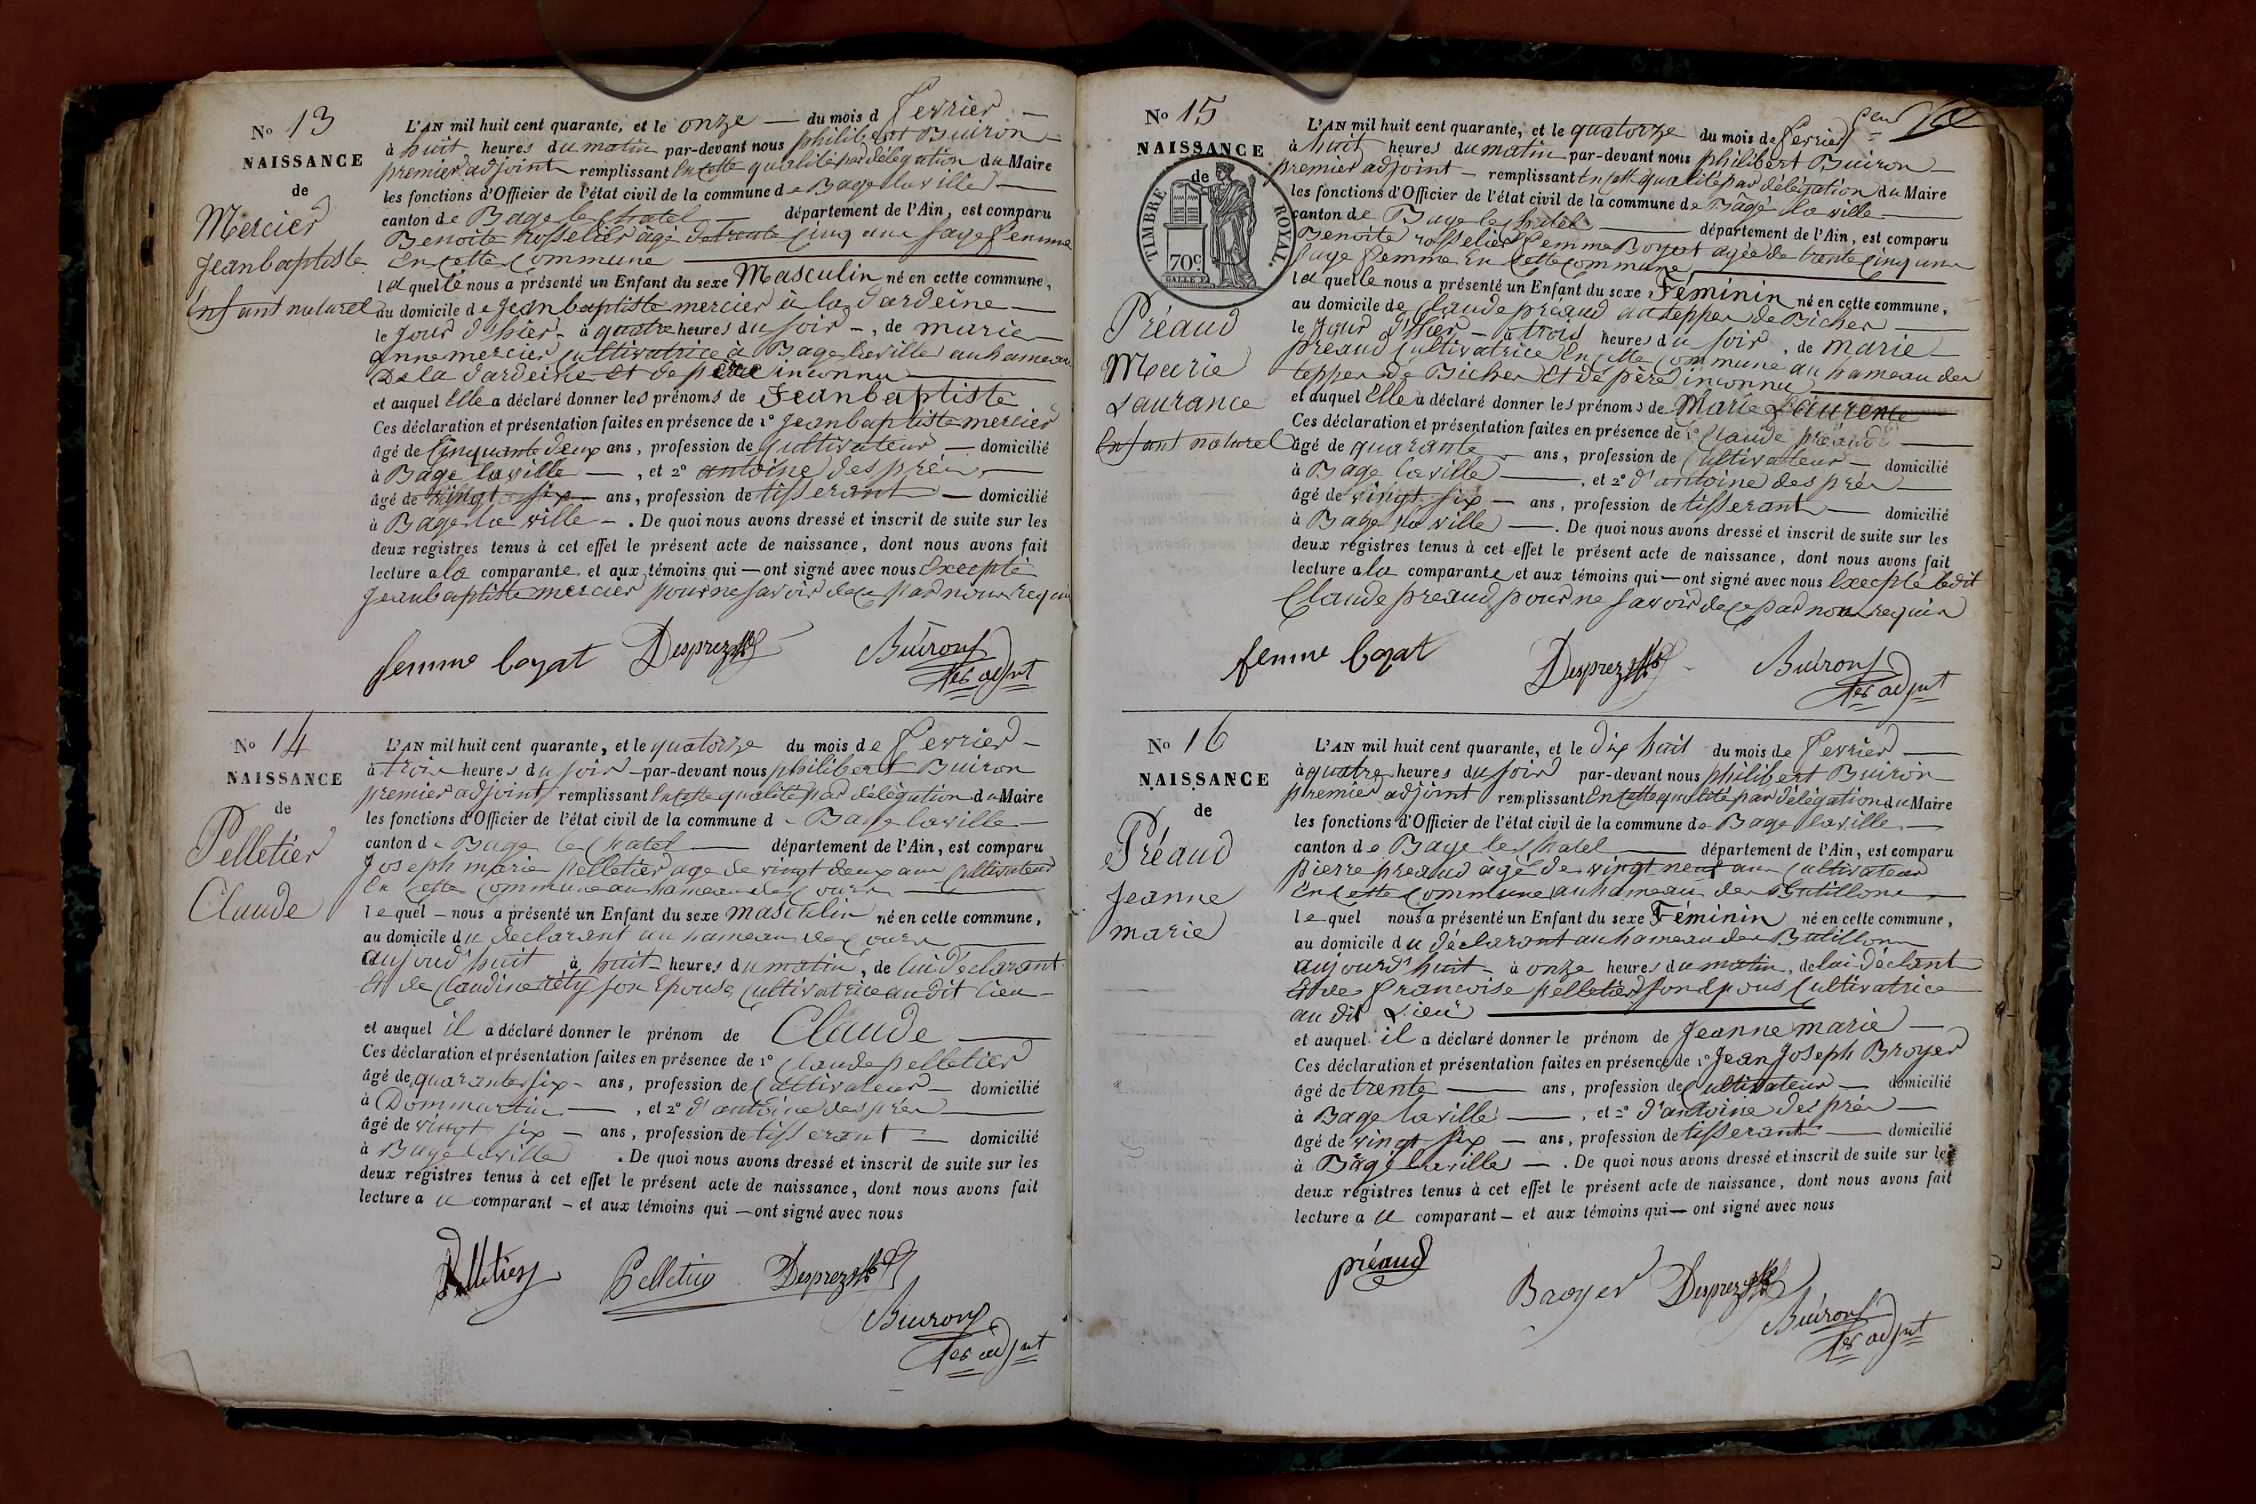 No 13
NAISSANCE
de
Mercier
Jeanbaptiste
Enfant naturel
L'AN mil huit cent quarante, et le onze — du mois d fevrier —
à huit heures du matin par-devant nous philibert Buiron
premier adjoint remplissant En cette qualité par délégation du Maire
les fonctions d'Officier de l'état civil de la commune de Bage la ville —
canton de Bage le Chatel — département de l'Ain, est comparu
Benoite Rosselier âgé de trente Cinq ans sage femme
En cette Commune —
laquelle nous a présenté un Enfant du sexe Masculin né en cette commune,
au domicile de Jeanbaptiste mercier à la Dardeine —
le Jour d'hier - à quatre heures du soir -, de marie
anne mercier Cultivatrice à Bage la ville au hameau
De la dardeine Et de père inconnu —
et auquel Elle a déclaré donner les prénoms de Jeanbaptiste
Ces déclaration et présentation faites en présence de 1° Jeanbaptiste mercier
âgé de Cinquante deux ans, profession de Cultivateur — domicilié
à Bage la ville —, et 2° antoine des prés —
âgé de vingt six — ans, profession de tisserant — domicilié
à Bage la ville —. De quoi nous avons dressé et inscrit de suite sur les
deux registres tenus à cet effet le présent acte de naissance, dont nous avons fait
lecture a la comparante et aux témoins qui — ont signé avec nous Excepté
Jeanbaptiste mercier pour ne savoir de ce par nous requis
femme boyat Desprez Buiron
1er adjnt
No 14
NAISSANCE
de
Pelletier
Claude
L'AN mil huit cent quarante, et le quatorze du mois de fevrier —
à trois heures du soir — par-devant nous philibert Buiron
premier adjoint remplissant En cette qualité par délégation du Maire
les fonctions d'Officier de l'état civil de la commune d Bage la ville —
canton d Bage le Chatel — département de l'Ain, est comparu
Joseph marie pelletier age de vingt deux ans Cultivateur
En cette Commune au hameau des —
lequel — nous a présenté un Enfant du sexe masculin né en cette commune,
au domicile du declarant au hameau des —
aujourd'huit à huit heures du matin, de lui déclarant
Et de Claudine son Epouse Cultivatrice audit lieu —
et auquel il a déclaré donner le prénom de Claude —
Ces déclaration et présentation faites en présence de 1° Claude pelletier
âgé de quarante six - ans, profession de Cultivateur — domicilié
à Dommartin —, et 2° d'antoine des prés —
âgé de vingt six — ans, profession de tisserant — domicilié
à Bage la ville . De quoi nous avons dressé et inscrit de suite sur les
deux registres tenus à cet effet le présent acte de naissance, dont nous avons fait
lecture a u comparant — et aux témoins qui — ont signé avec nous
Pelletier Pelletier Desprez
Buiron
1er adjnt
No 15
NAISSANCE
de
TIMBRE ROYAL.
70c
Préaud
Marie
Laurance
Enfant naturel
L'AN mil huit cent quarante, et le quatorze du mois de fevrier
à huit heures du matin par-devant nous philibert Buiron —
premier adjoint — remplissant En cette qualité par délégation du Maire
les fonctions d'Officier de l'état civil de la commune de Bâgé la ville —
canton de Bage le Chatel — département de l'Ain, est comparu
Benoite rosselier femme Boyat agée de trente Cinq ans
sage femme En Cette commune —
laquelle nous a présenté un Enfant du sexe Féminin né en cette commune,
au domicile de Claude préaud au tepper de Bicher —
le Jour d'hier — à trois heures du soir, de marie
preaud Cultivatrice En cette Commune au hameau des
tepper de Bicher Et de père inconnu —
et auquel Elle a déclaré donner les prénoms de Marie Laurence
Ces déclaration et présentation faites en présence de 1° Claude préaud —
âgé de quarante — ans, profession de Cultivateur — domicilié
à Bage la ville —, et 2° d'antoine des prés —
âgé de vingt six — ans, profession de tisserant — domicilié
à Bage la ville —. De quoi nous avons dressé et inscrit de suite sur les
deux registres tenus à cet effet le présent acte de naissance, dont nous avons fait
lecture a la comparante et aux témoins qui — ont signé avec nous Excepté ledit
Claude preaud pour ne savoir de ce par nous requis
femme boyat Desprez Buiron
1er adjnt
No 16
NAISSANCE
de
Préaud
Jeanne
marie
L'AN mil huit cent quarante, et le dix huit du mois de fevrier —
à quatre heures du soir par-devant nous philibert Buiron
premier adjoint remplissant En cette qualité par délégation du Maire
les fonctions d'Officier de l'état civil de la commune de Bage la ville —
canton de Bage le Chatel — département de l'Ain, est comparu
pierre preaud âgé de vingt neuf ans Cultivateur
En cette Commune au hameau des Butillons —
lequel nous a présenté un Enfant du sexe Féminin né en cette commune,
au domicile du déclarant au hameau des Butillons
aujourd'huit - à onze heures du matin, de lui déclant
Et de francoise pelletier son Epous Cultivatrice
au dit Lieu —
et auquel il a déclaré donner le prénom de Jeanne marie —
Ces déclaration et présentation faites en présence de 1° Jean Joseph Broyer
âgé de trente — ans, profession de Cultivateur — domicilié
à Bage la ville —, et 2° d'antoine des prés —
âgé de vingt six — ans, profession de tisserant — domicilié
à Bâgé la ville —. De quoi nous avons dressé et inscrit de suite sur les
deux registres tenus à cet effet le présent acte de naissance, dont nous avons fait
lecture a u comparant — et aux témoins qui — ont signé avec nous
préaud Broyer Desprez
Buiron
1er adjnt